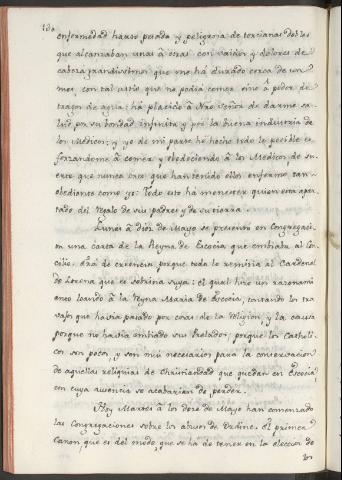 130
enfermedad harto pesada y peligrosa de tercianas dobles
que alcanzaban unas à otras con vaidos y dolores de
cabeza grandissimos que me hà durado cerca de un
mes, con tal astio que no podía comer sinò à poder de
tragos de agua; hà placido à nro Señor de darme sa-
lud por su bondad infinita y por la buena industria de
los Medicos; y yo de mi parte he hecho todo lo posible es-
forzandome à comer y obedeciendo à los Medicos, de su-
erte que nunca creo que han tenido ellos enfermo tan
obediente como yo: Todo esto hà menester quien està apar-
tado del regalo de sus padres y de su tierra.
Lunes à diez de Mayo se presentò en Congregaci-
on una carta de la Reyna de Escocia que embiaba al Con-
cilio. Era de creencia, porque todo lo remitia al Cardenal
de Lorena que es sobrina suya: el qual hizo un razonami-
ento loando à la Reyna Maria de Escocia, contando los tra-
vajos que havia pasado por cosas de la religion, y la causa
porque no havia embiado sus Prelados; porque los Catholi-
cos son pocos, y son mui necesarios para la conservacion
de aquellas reliquias de Christiandad que quedan en Escocia,
con cuya ausencia se acabarian de perder.
Hoy Martes à los doze de Mayo han comenzado
las Congregaciones sobre los abusos de Ordine. El primer
Canon, que es del modo que se ha de tener en la eleccion de
los